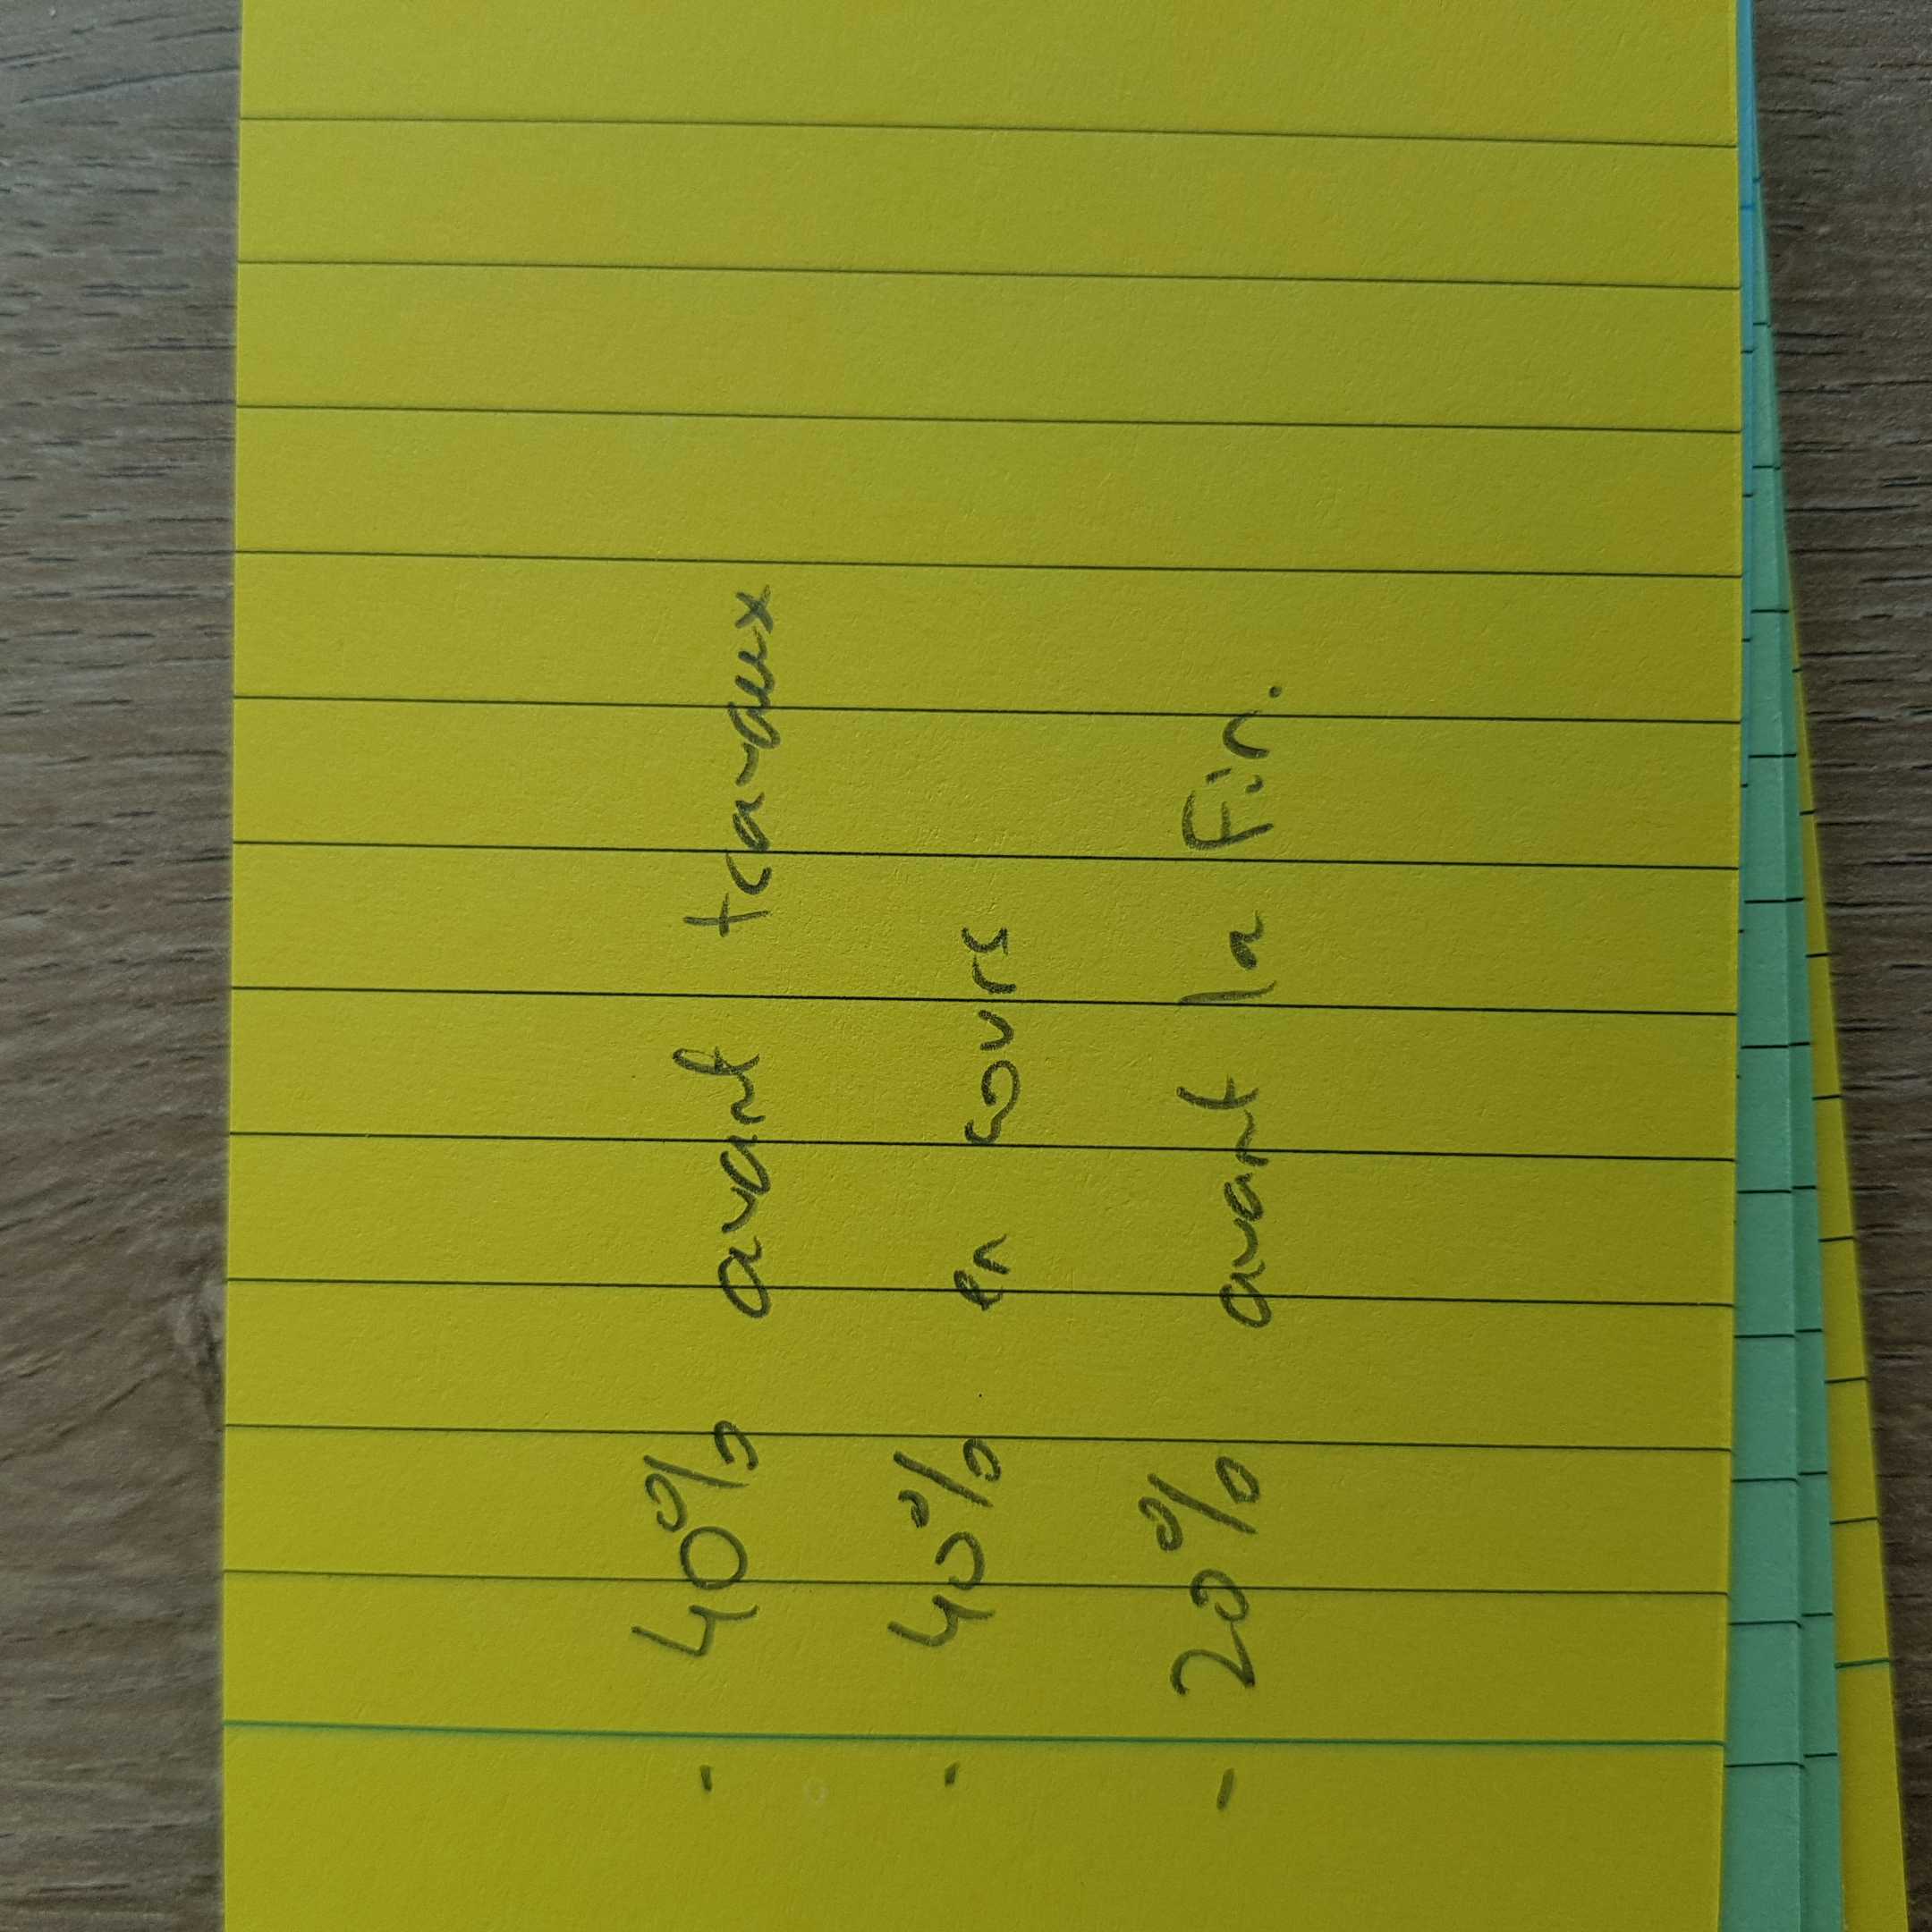 - 40% avant travaux
- 40% en cours
- 20% avant la fin.